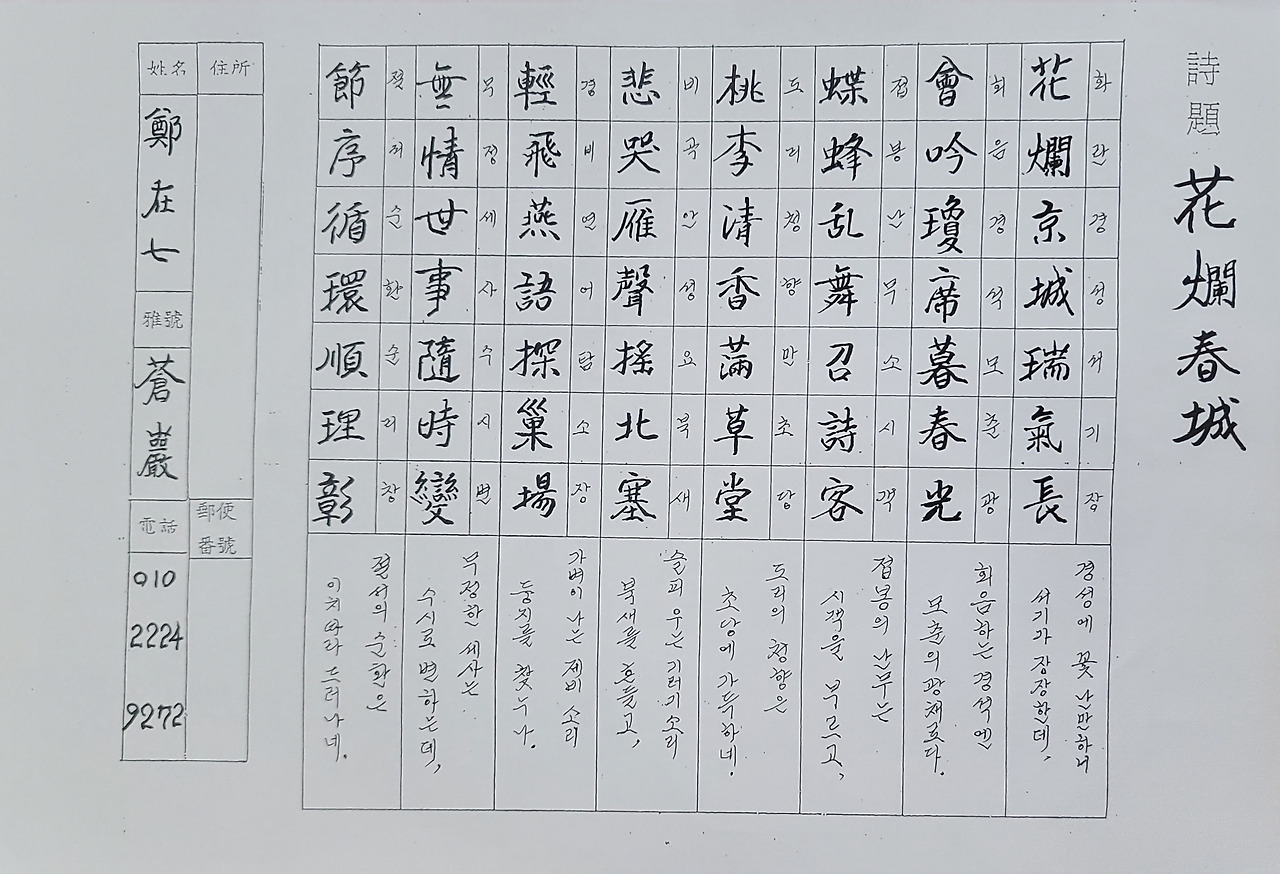 詩題 花爛春城
花爛京城瑞氣長
화란경성서기장
경성에 꽃 난만하니
서기가 장장한데,
會吟瓊席暮春光
회음경석모춘광
회음하는 경석엔
모춘의 광채로다.
蝶蜂乱舞召詩客
접봉난무소시객
접봉의 난무는
시객을 부르고,
桃李清香滿草堂
도리청향만초당
도리의 청향은
초당에 가득하네.
悲哭雁聲搖北塞
비곡안성요북새
슬피 우는 기러기 소리
북새를 흔들고,
輕飛燕語探巢場
경비연어탐소장
가벼이 나는 제비 소리
둥지를 찾누나.
無情世事隨時變
무정세사수시변
무정한 세사는
수시로 변하는데,
節序循環順理彰
절서순환순리창
절서의 순환은
이치따라 드러나네.
住所
郵便
番號
姓名
鄭在七
雅號
蒼巖
電話
010
2224
9272